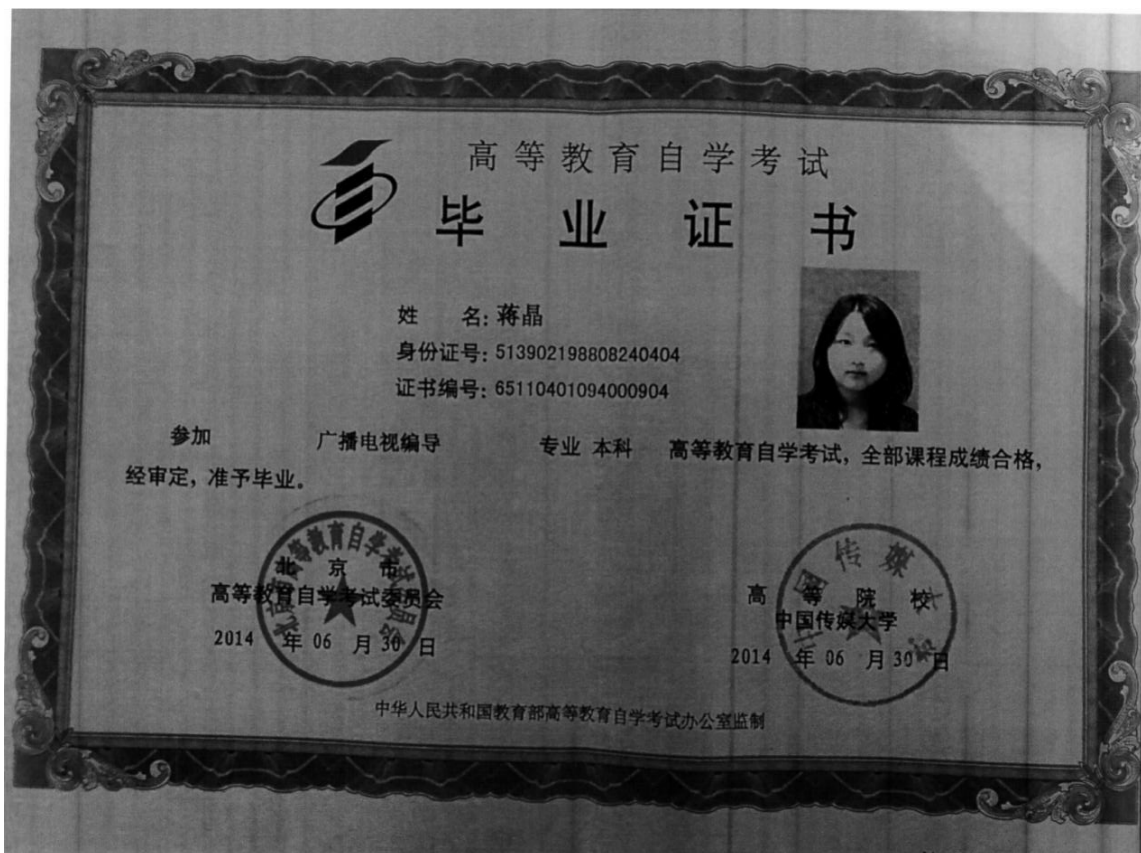 高等教育自学考试
毕业证书
姓 名: 蒋晶
身份证号: 513902198808240404
证书编号: 65110401094000904
参加 广播电视编导 专业 本科 高等教育自学考试, 全部课程成绩合格,
经审定, 准予毕业。
北京市高等教育自学考试委员会
北京市
高等教育自学考试委员会
2014 年 06 月 30 日
中国传媒大学
高等院校
中国传媒大学
2014 年 06 月 30 日
中华人民共和国教育部高等教育自学考试办公室监制